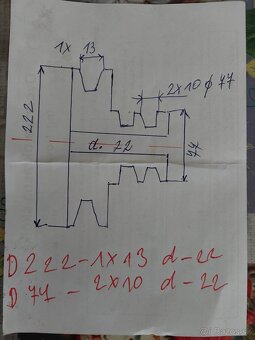 1x 13
2x10 ϕ 77
222
d. 22
77
D 222-1x13 d-22
D 77 - 2x10 d-22